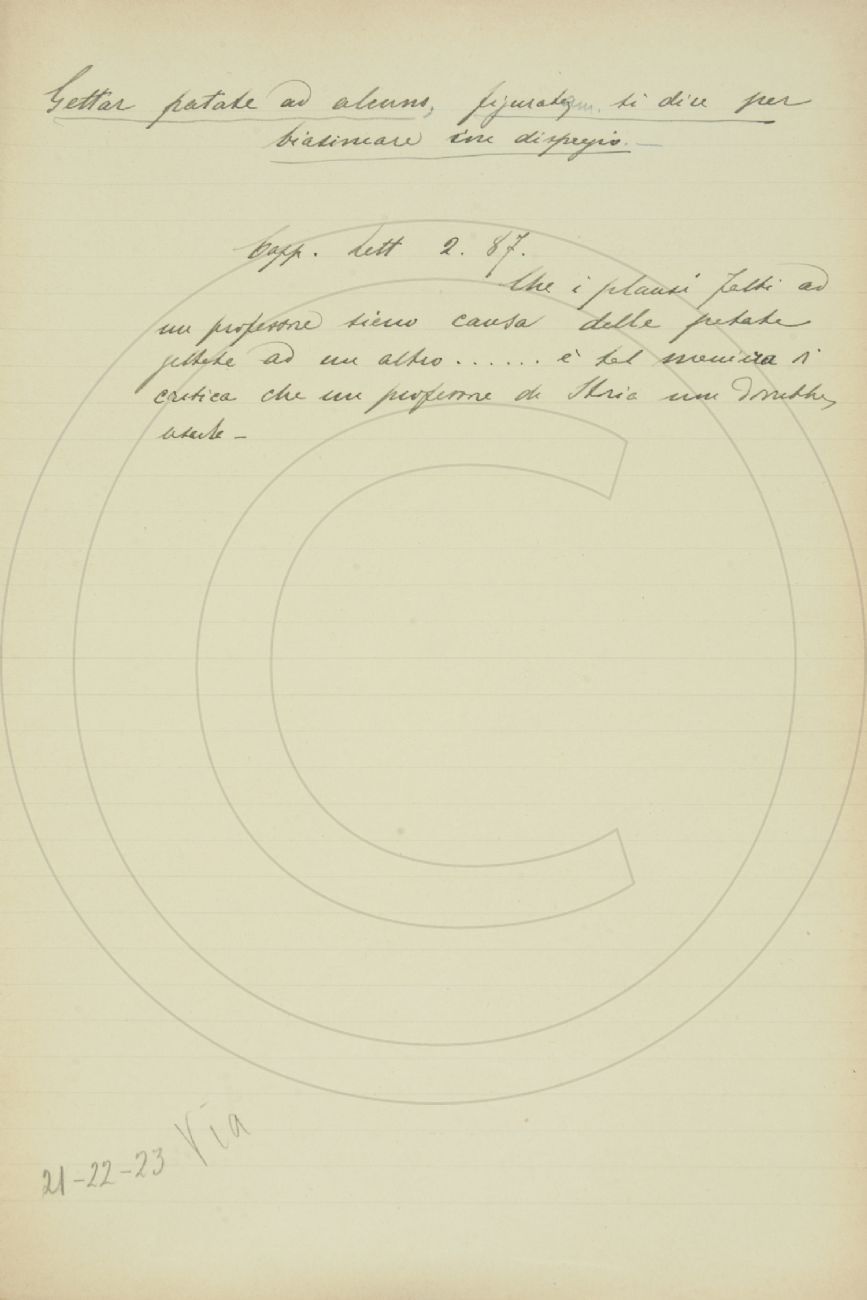 Gettar patate ad alcuno, figuratam. si dice per
biasimare con dispregio.
Capp. Lett 2. 87.
Che i plausi fatti ad
un professore sieno causa delle patate
gettate ad un altro . . . . . . è tal maniera di
critica che un professore di Storia non dovrebbe
usarla -
21-22-23 Via